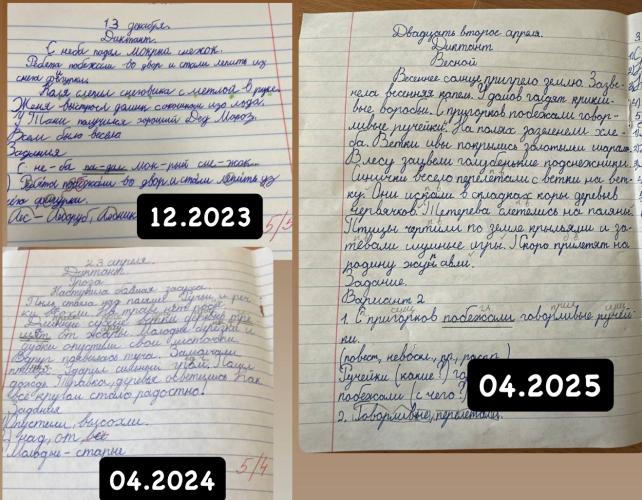 13 декабря.
Диктант.
С неба падал мокрый снежок.
Ребята побежали во двор и стали лепить из
снега фигурки.
Коля слепил снеговика с метлой в руке.
Женя выстроил домик с окошком изо льда.
У Тани получился хороший Дед Мороз.
Всем было весело
Задания
С не-ба па-дал мок-рый сне-жок.
Ребята побежали во двор и стали лепить из
фигурки.
12.2023
5/5
23 апреля.
Диктант.
Гроза.
Наступила
Пыль стала над полями. Ручьи и реч-
ки
от жары. Молодые берёзки и
дубки опустили свои листочки.
Вдруг появилась туча. Замолчали
птицы. Ударил сильный гром. Пошёл
дождь. Травка, деревья осветились. Как
всё кругом стало радостно!
Задания
Опустили, высохли.
над, от,
Молодые - старые
04.2024
5/4
Двадцать второе апреля.
Диктант
Весной
Весеннее солнце пригрело землю. Зазве-
нела весенняя капель. У домов галдят крикли-
вые воробьи. С пригорков побежали говор-
ливые ручейки. На полях зазеленели хле-
ба. Ветки ивы покрылись золотыми шарами.
В лесу зацвели голубенькие подснежники.
Синички весело перелетали с ветки на вет-
ку. Они искали в складках коры деревьев
червячков. Тетерева слетелись на поляны.
Птицы чертили по земле крыльями и за-
тевали шумные игры. Скоро прилетят на
родину журавли.
Задание.
Вариант 2
1. С пригорков побежали говорливые ручей-
ки.
(повест., невоскл., пр., распр.)
Ручейки (какие?)
побежали (с чего?)
2. Говорливые, перелетали.
04.2025